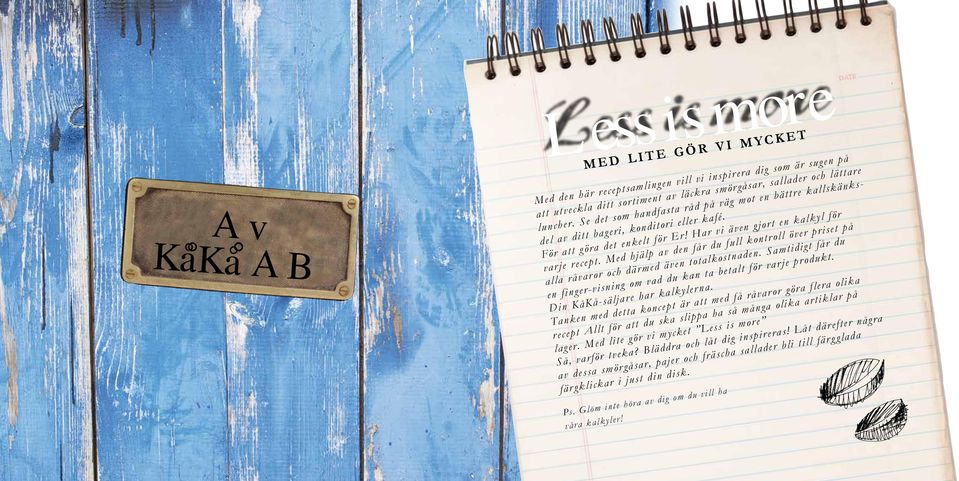 Av
KåKå AB
DATE
Less is more
MED LITE GÖR VI MYCKET
Med den här receptsamlingen vill vi inspirera dig som är sugen på
att utveckla ditt sortiment av läckra smörgåsar, sallader och lättare
luncher. Se det som handfasta råd på väg mot en bättre kallskänks-
del av ditt bageri, konditori eller kafé.
För att göra det enkelt för Er! Har vi även gjort en kalkyl för
varje recept. Med hjälp av den får du full kontroll över priset på
alla råvaror och därmed även totalkostnaden. Samtidigt får du
en finger-visning om vad du kan ta betalt för varje produkt.
Din KåKå-säljare har kalkylerna.
Tanken med detta koncept är att med få råvaror göra flera olika
recept Allt för att du ska slippa ha så många olika artiklar på
lager. Med lite gör vi mycket "Less is more"
Så, varför tveka? Bläddra och låt dig inspireras! Låt därefter några
av dessa smörgåsar, pajer och fräscha sallader bli till färgglada
färgklickar i just din disk.
Ps. Glöm inte höra av dig om du vill ha
våra kalkyler!